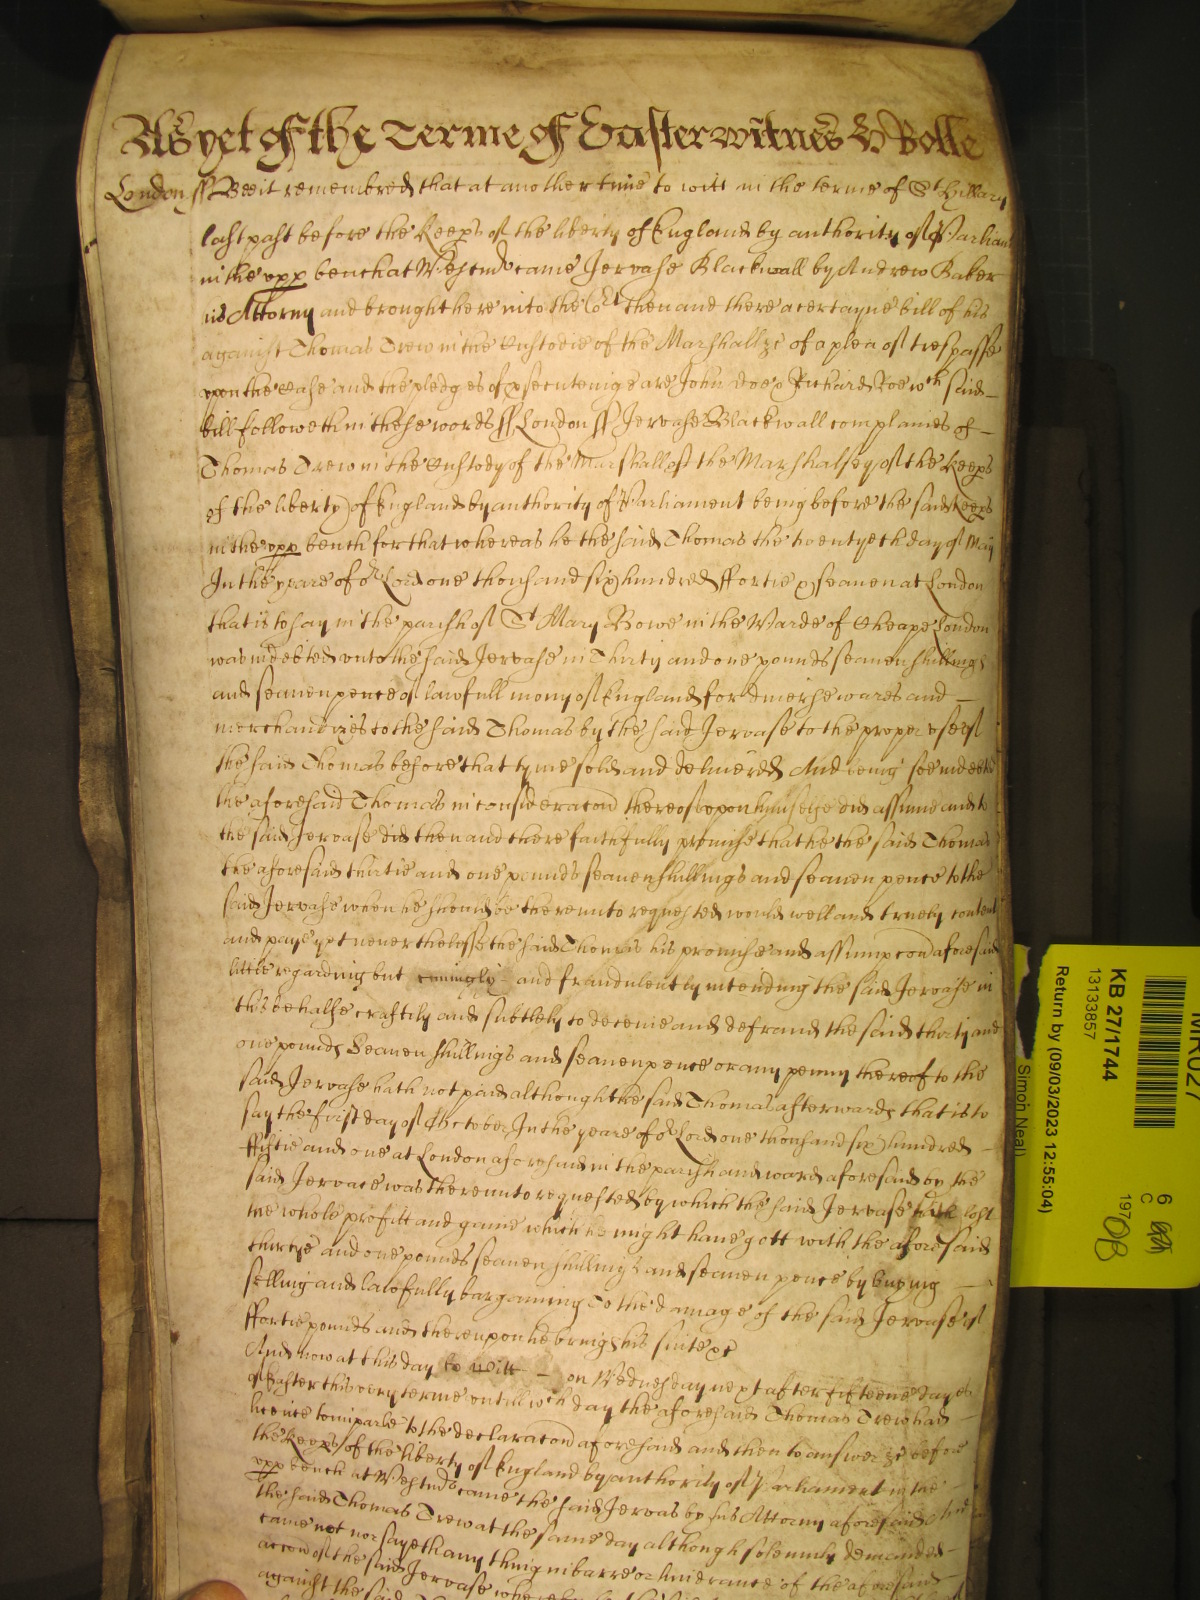 As yet of the Terme of Easter witnes H Rolle
London ss Bee it remembred that at another time to witt in the terme of St Hillary
last past before the Keeps of the liberty of England by authority of Parliam
in the upp bench at Westmr came Jervase Blackwall by Andrew Baker
his Attorny and brought here into the Cort then and there a certayne bill of his
against Thomas Trew in the Custodie of the Marshall &c of a plea of trespasse
upon the Case and the pledges of psecuteing are John Doe & Richard Roe wch said
bill followeth in these words ss London ss Jervase Blackwall complaines of
Thomas Trew in the Custody of the Marshall of the Marshalsey of the Keeps
of the liberty of England by authority of Parliament being before the said Keeps
in the upp bench for that whereas he the said Thomas the twentyeth day of May
In the yeare of or Lord one thousand six hundred ffortie & seaven at London
that is to say in the parish of St Mary Bowe in the Warde of Cheape London
was indebted unto the said Jervase in Thirty and one pounds seaven shillings
and seaven pence of lawfull mony of England for diverse wares and
merchandizes to the said Thomas by the said Jervase to the proper use of
the said Thomas before that tyme sold and delivered And being soe indebted
the aforesaid Thomas in consideracon thereof upon himselfe did assume and to
the said Jervase did then and there faithfully promise that he the said Thomas
the aforesaid thirtie and one pounds seaven shillings and seaven pence to the
said Jervase when he should be thereunto requested would well and truely content
and pay yet neverthelesse the said Thomas his promise and assumpcon aforesaid
little regarding but cuningly and fraudulently intending the said Jervase in
this behalfe craftily and subtlely to deceive and defraud the said thirty and
one pounds Seaven shillings and seaven pence or any penny thereof to the
said Jervase hath not paid although the said Thomas afterwards that is to
say the first day of October In the yeare of or Lord one thousand six hundred
ffiftie and one at London aforesaid in the parish and ward aforesaid by the
said Jervace was thereunto requested by which the said Jervase hath lost
the whole profitt and gaine which he might have gott with the aforesaid
thirtie and one pounds seaven shillings and seaven pence by buying
selling and lawfully bargaining To the damage of the said Jervase of
ffortie pounds and thereupon he brings his suite &c
And now at this day to witt on Wednesday next after fifteene dayes
of Easter this very terme untill wch day the aforesaid Thomas Trew had
licence to imparle to the declaracon aforesaid and then to answer &c before
the Keeps of the liberty of England by authority of Parliament in the
upp bench at Westmr came the said Jervas by his Attorny aforesaid And
the said Thomas Trew at the same day although solemnly demanded
came not nor sayeth any thing in barre or hindrance of the aforesaid
accon of the said Jervase whereby
against the said
MR027
6
C
KB 27/1744
13133857
197 08
Return by (09/03/2023 12:55:04)
Simon Neal)